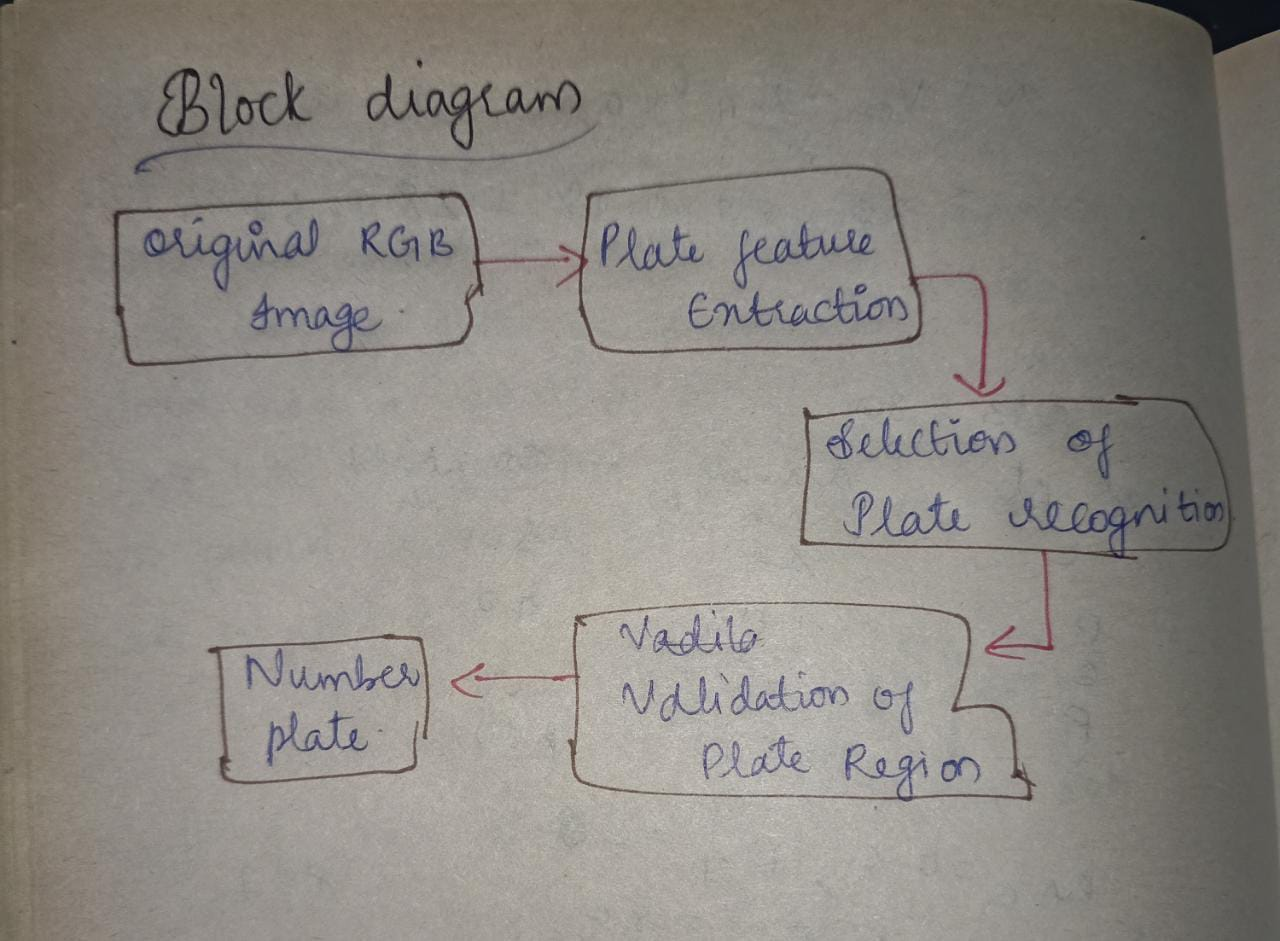 Block diagram
Original RGB
Image
Plate feature
Extraction
Selection of
Plate recognition
Vadila
Validation of
Plate Region
Number
plate